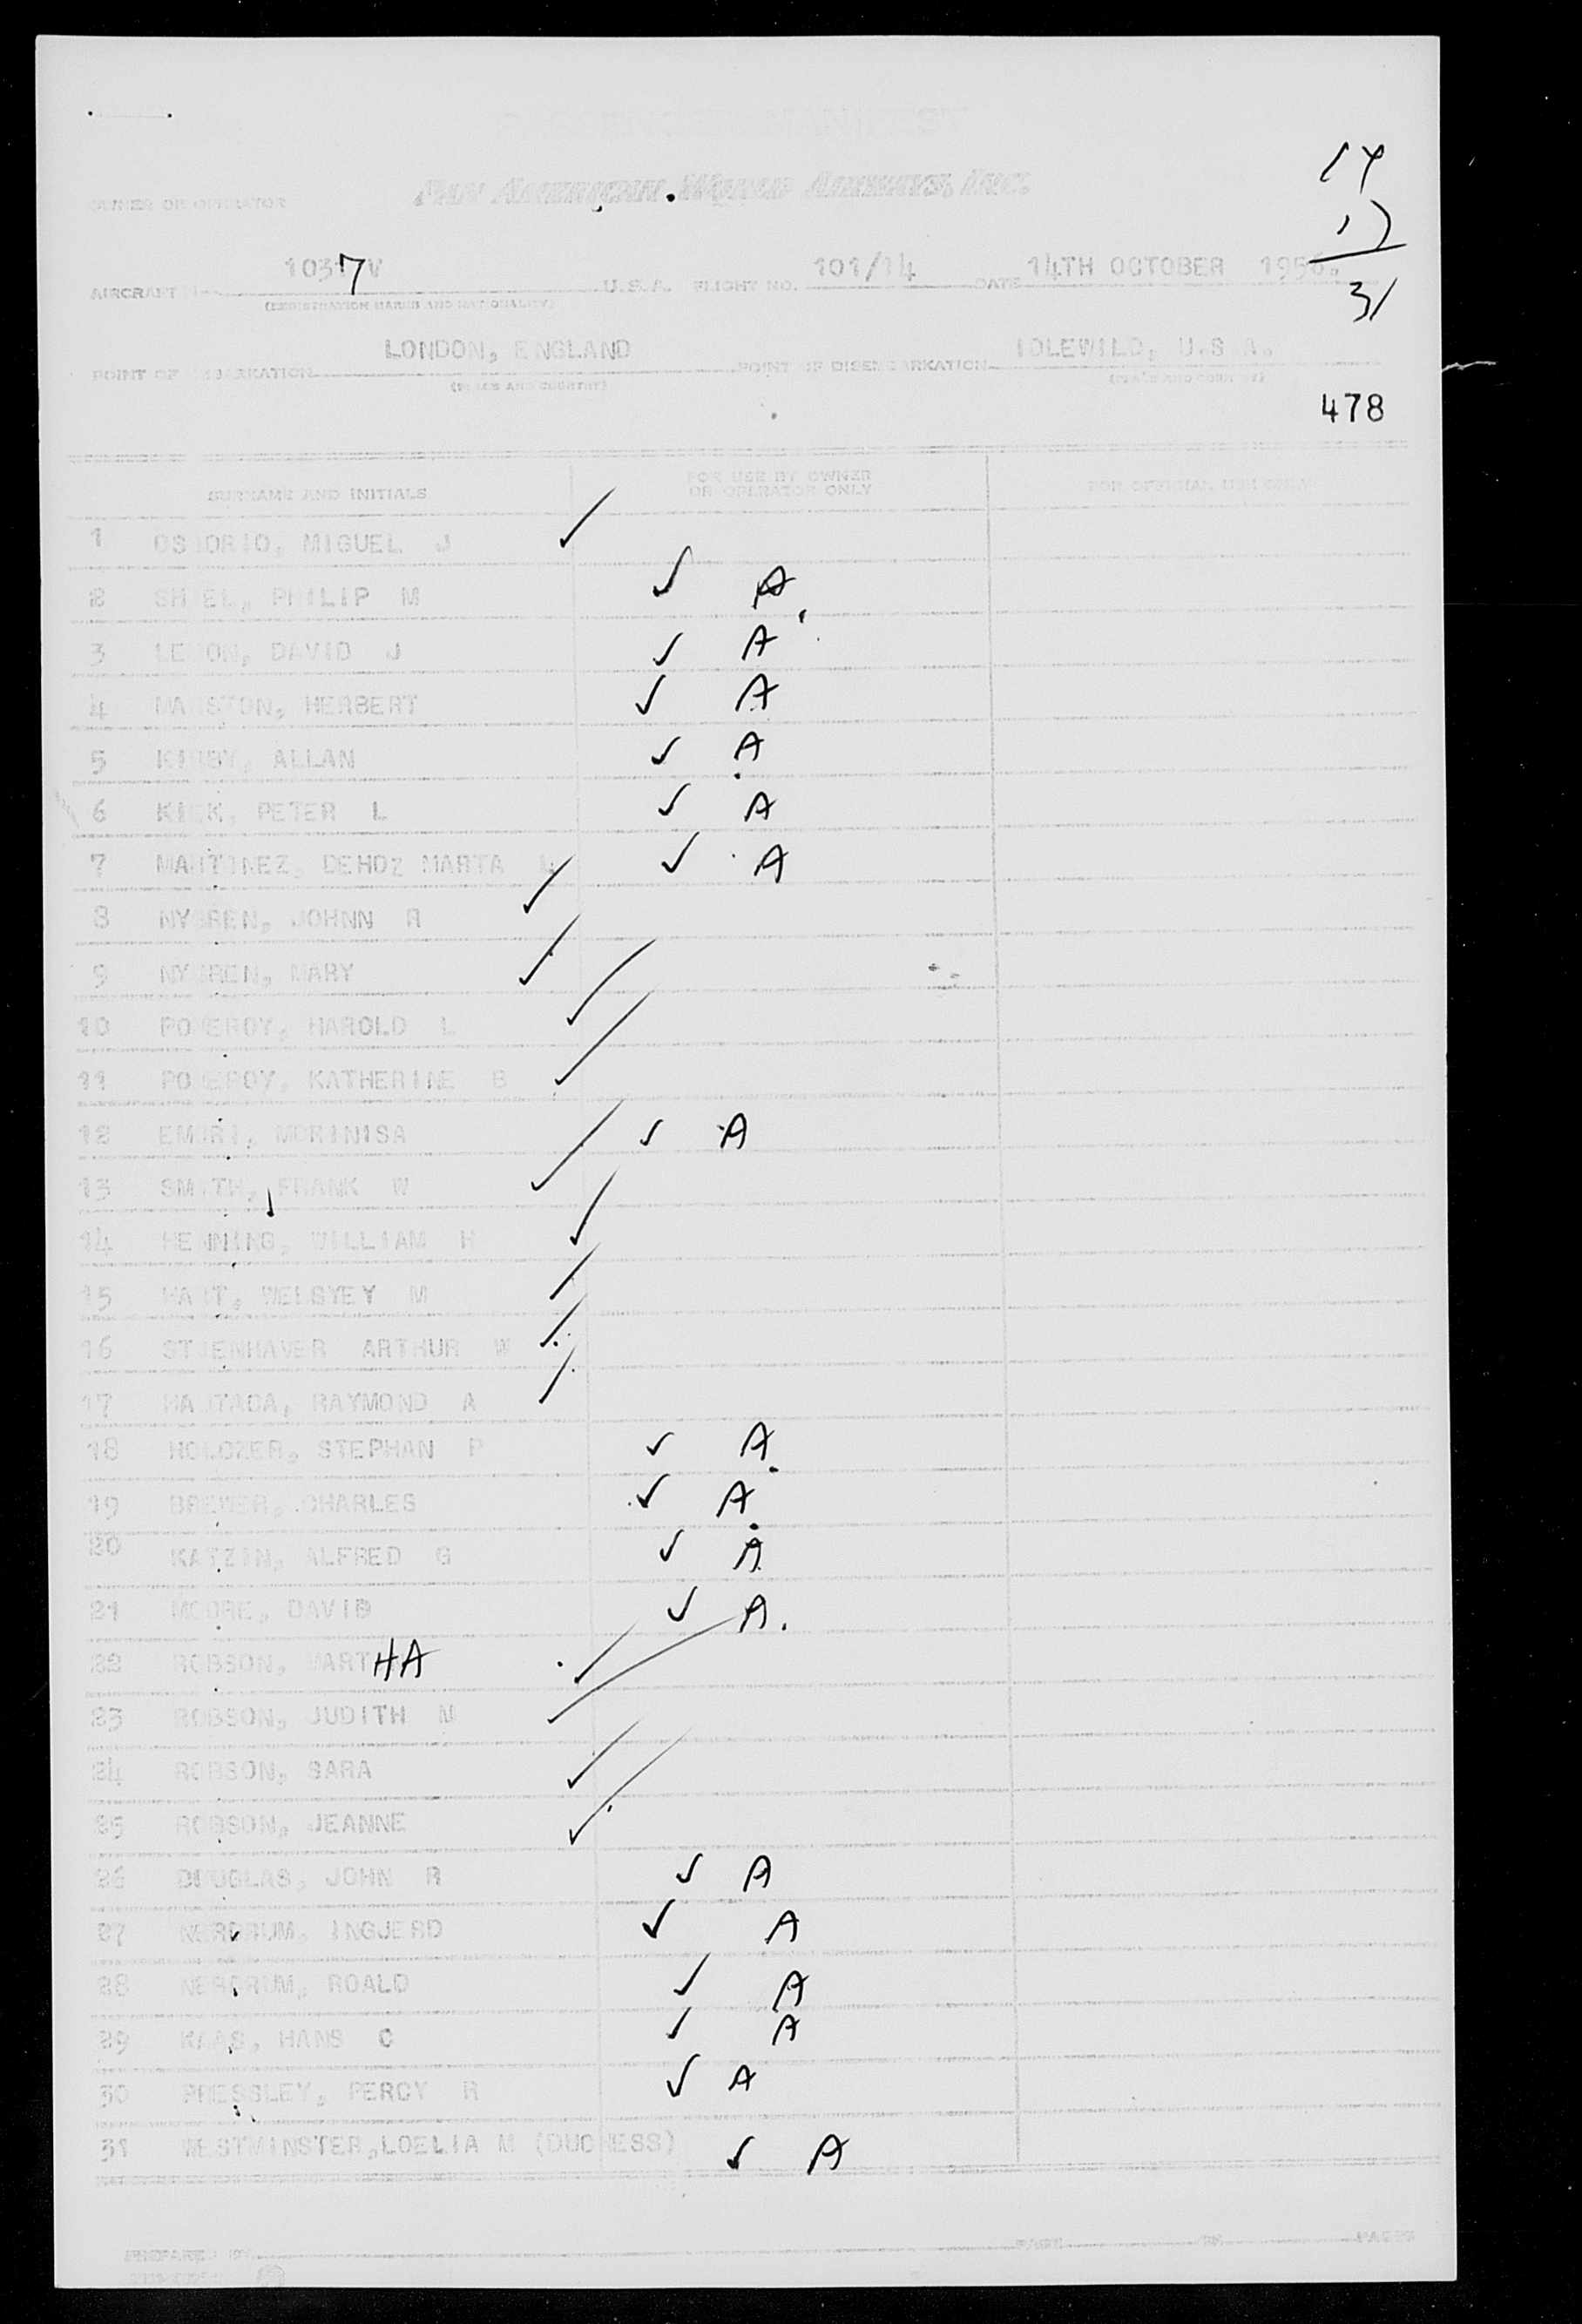 PASSENGER MANIFEST
PAN AMERICAN WORLD AIRWAYS, INC.
OWNER OR OPERATOR
14
17
31
AIRCRAFT 1037V U.S.A. FLIGHT NO. 101/14 DATE 14TH OCTOBER 1956.
(REGISTRATION MARKS AND NATIONALITY)
POINT OF EMBARKATION LONDON, ENGLAND POINT OF DISEMBARKATION IDLEWILD, U.S.A.
(PLACE AND COUNTRY) (PLACE AND COUNTRY)
478
SURNAME AND INITIALS FOR USE BY OWNER OR OPERATOR ONLY FOR OFFICIAL USE ONLY
1 OSSORIO, MIGUEL J /
2 SHIEL, PHILIP M ✓ A
3 DAVID J ✓ A
4 MARSTON, HERBERT ✓ A
5 KIRBY, ALLAN ✓ A
6 KICK, PETER L ✓ A
7 MARTINEZ, DEHOZ MARTA ✓ A
8 NYGREN, JOHNN R ✓
9 NYGREN, MARY ✓
10 POMEROY, HAROLD L ✓
11 POMEROY, KATHERINE B ✓
12 EMORI, MORINISA ✓ A
13 SMITH, FRANK W ✓
14 HENNING, WILLIAM H ✓
15 HART, WELBYEY M /
16 ARTHUR W /
17 RAYMOND A /
18 HOLOZER, STEPHAN P ✓ A
19 BREWER, CHARLES ✓ A
20 KATZIN, ALFRED G ✓ A
21 MOORE, DAVID ✓ A.
22 ROBSON, MARTHA /
23 ROBSON, JUDITH M /
24 ROBSON, SARA ✓
25 ROBSON, JEANNE ✓
26 DOUGLAS, JOHN R ✓ A
27 NERDRUM, INGJERD ✓ A
28 NERDRUM, ROALD ✓ A
29 KAAS, HANS C ✓ A
30 PRESSLEY, PERCY R ✓ A
31 WESTMINSTER, LOELIA M (DUCHESS) ✓ A
PREPARED BY PAGE OF PAGES